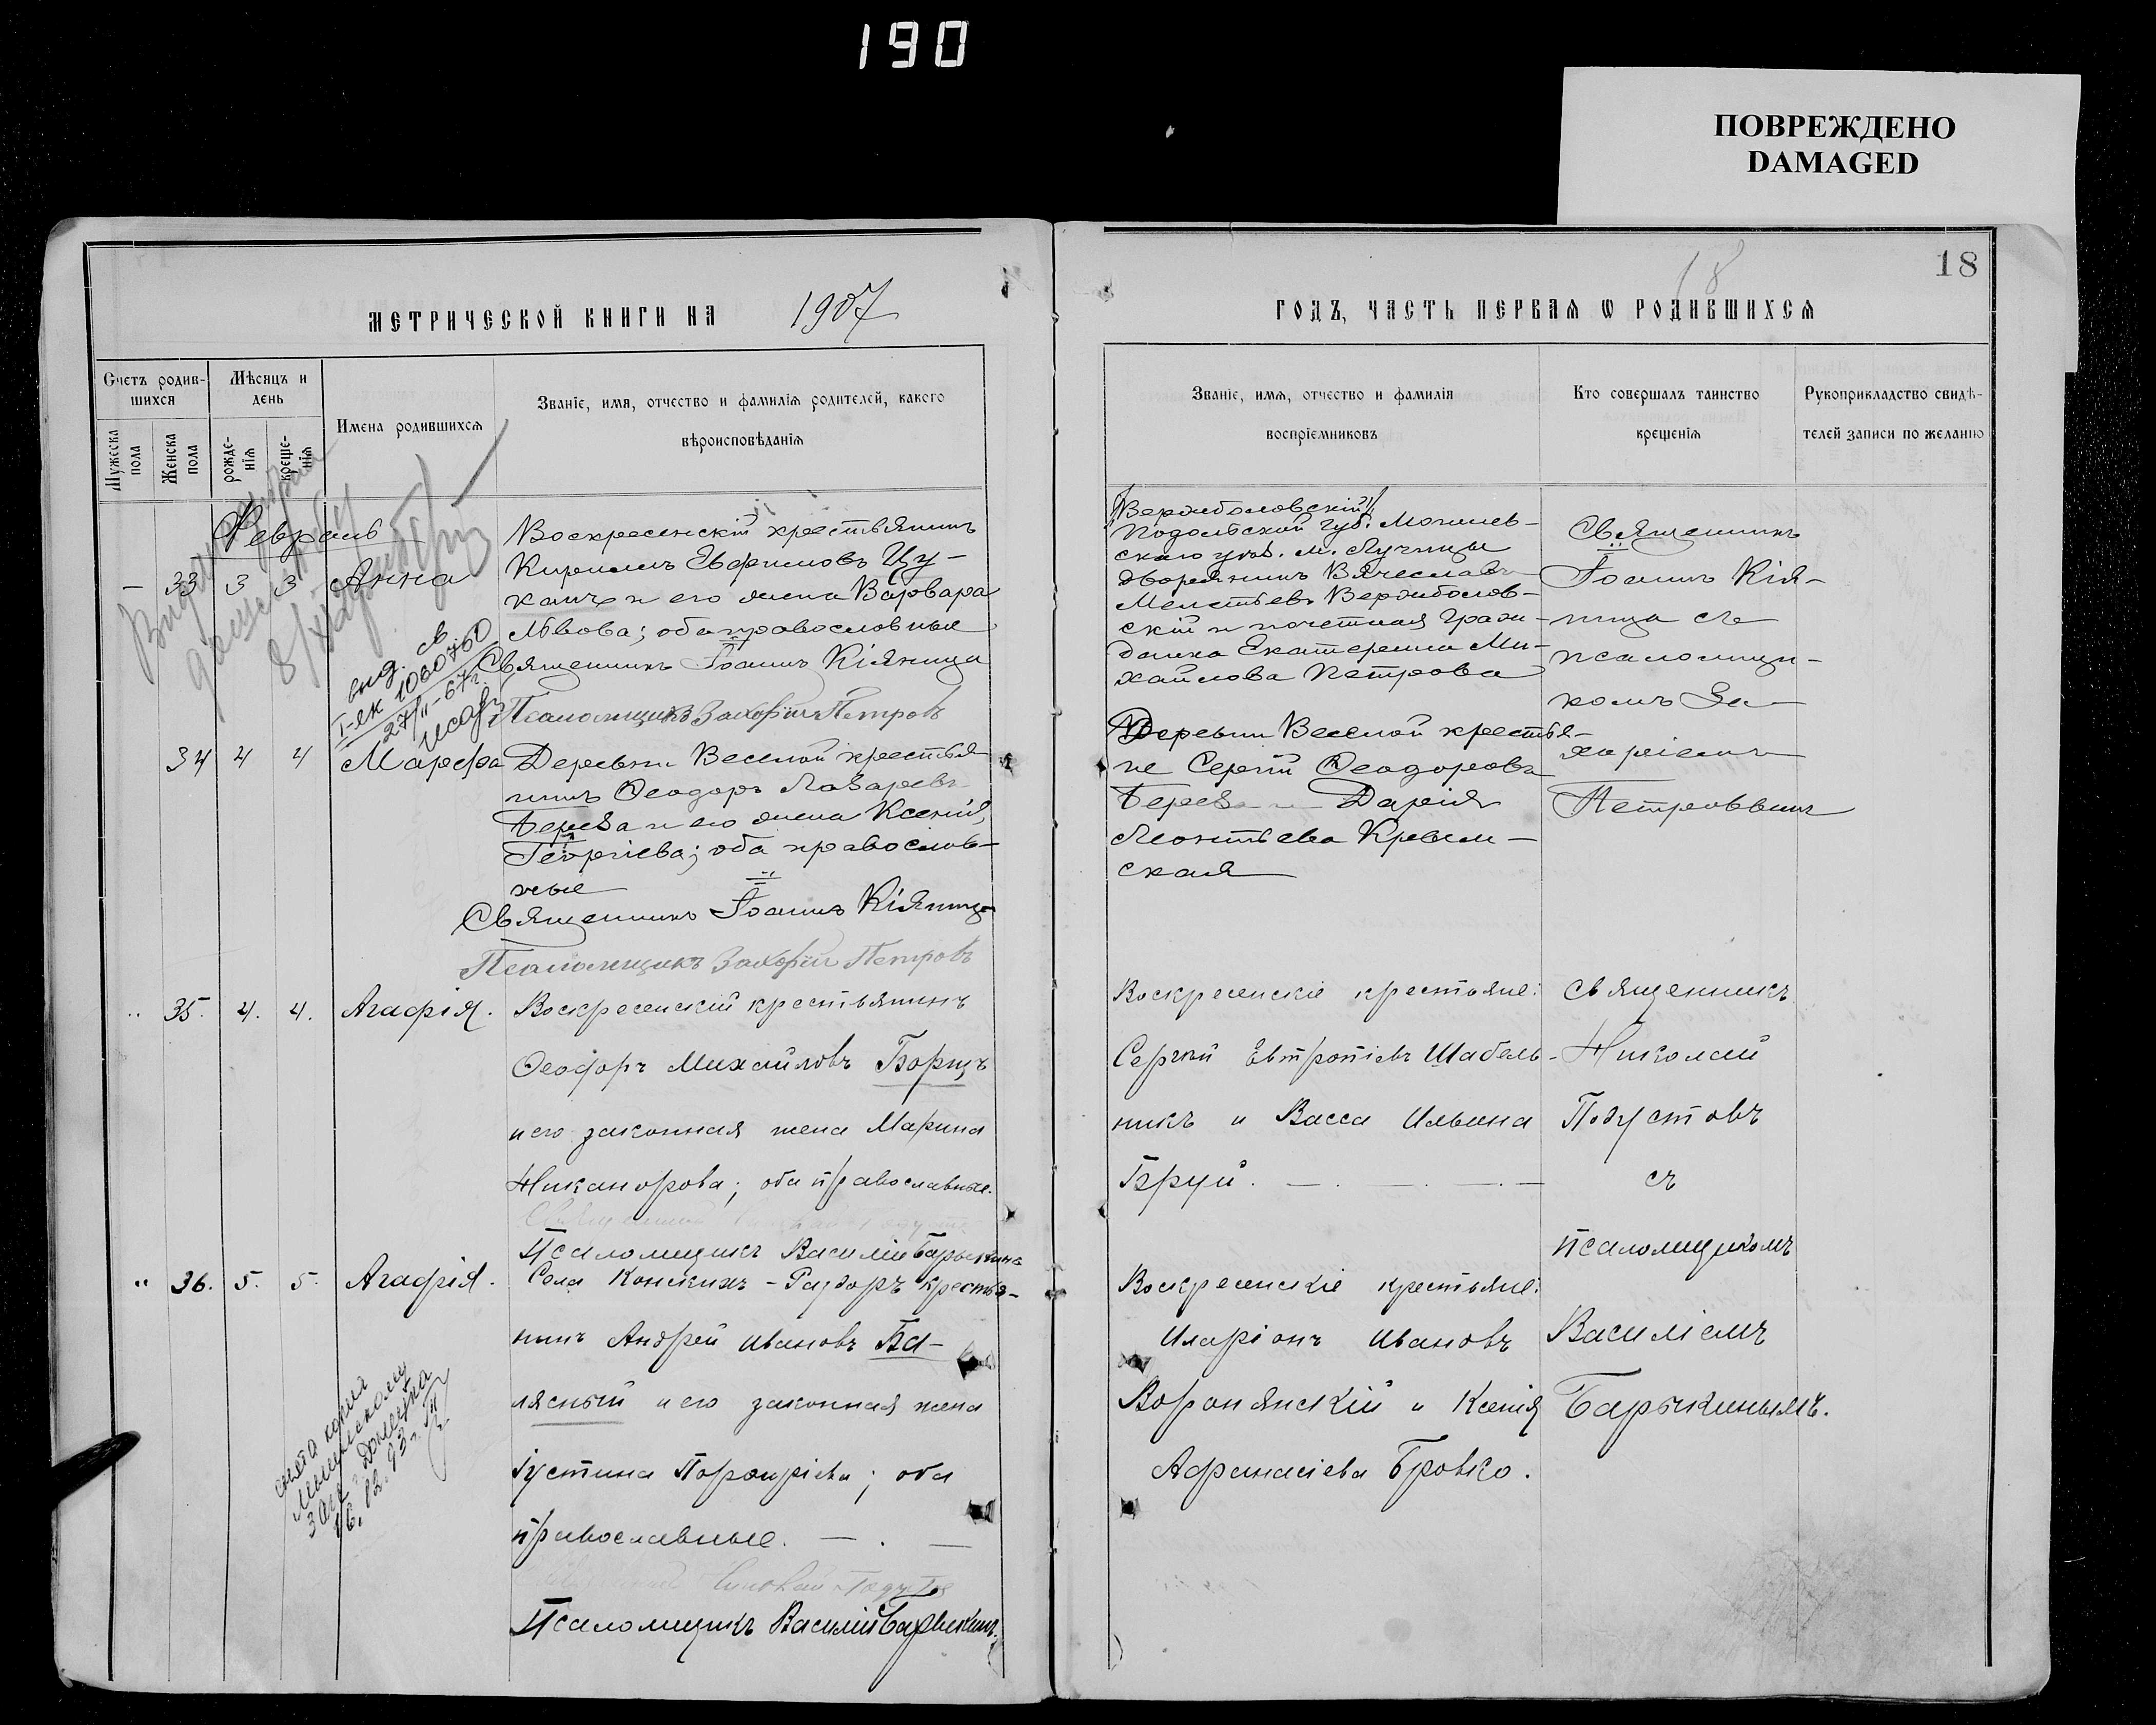 190
ПОВРЕЖДЕНО
DAMAGED
18
18
МЕТРИЧЕСКОЙ КНИГИ НА 1907
ГОДЪ, ЧАСТЬ ПЕРВАЯ Ѡ РОДИВШИХСЯ
Счетъ родив-
шихся
Мужеска
пола
Женска
пола
Мѣсяцъ и
день
рожде-
нія
креще-
нія
Имена родившихся
Званіе, имя, отчество и фамилія родителей, какого
вѣроисповѣданія
Званіе, имя, отчество и фамилія
воспріемниковъ
Кто совершалъ таинство
крещенія
Рукоприкладство свидѣ-
телей записи по желанію
Февраль
– 33 3 3 Анна
Воскресенскій крестьянинъ
Кириллъ Евфимовъ Цу-
канъ и его жена Варвара
Львова; оба православные
Священникъ Іоаннъ Кіяница
Псаломщикъ Захарій Петровъ
Вержболовскій
Подольской губ. Могилев-
скаго уѣз. м. Лучинца
дворянинъ Вячеславъ
Мелетьевъ Вержболов-
скій и почетная граж-
данка Екатерина Ми-
хайлова Петрова
Священникъ
Іоаннъ Кія-
ница съ
псаломщи-
комъ За-
харіемъ
Петровымъ
выд. св
I-ЯК 1060760
27/II-67г.
34 4 4 Марфа
Деревни Веселой крестья
нинъ Ѳеодоръ Лазаревъ
Береза и его жена Ксенія
Георгіева; оба православ-
ные
Священникъ Іоаннъ Кіяница
Псаломщикъ Захарій Петровъ
Деревни Веселой крестья-
не Сергій Ѳеодоровъ
Береза и Дарія
Леонтьева Крым-
ская
" 35. 4. 4. Агафія.
Воскресенскій крестьянинъ
Ѳеодоръ Михайловъ Борщъ
и его законная жена Марина
Никанорова; оба православные.
Псаломщикъ Василій Барыкинъ
Воскресенскіе крестьяне:
Сергій Евтропіевъ Шабель-
никъ и Васса Ильина
Бруй. — . — . — . —
Священникъ
Николай
Подустовъ
съ
псаломщикомъ
Василіемъ
Барыкинымъ.
" 36. 5. 5. Агафія.
Села Конскихъ-Раздоръ крестья-
нинъ Андрей Ивановъ Ба-
лясный и его законная жена
Іустина Порфирьева; оба
православные. — . —
Николай Подустов
Псаломщикъ Василій Барыкинъ.
Воскресенскіе крестьяне:
Иларіонъ Ивановъ
Воронянскій и Ксенія
Афанасіева Бровко.
снята копия
Донецка
16.12.93г.